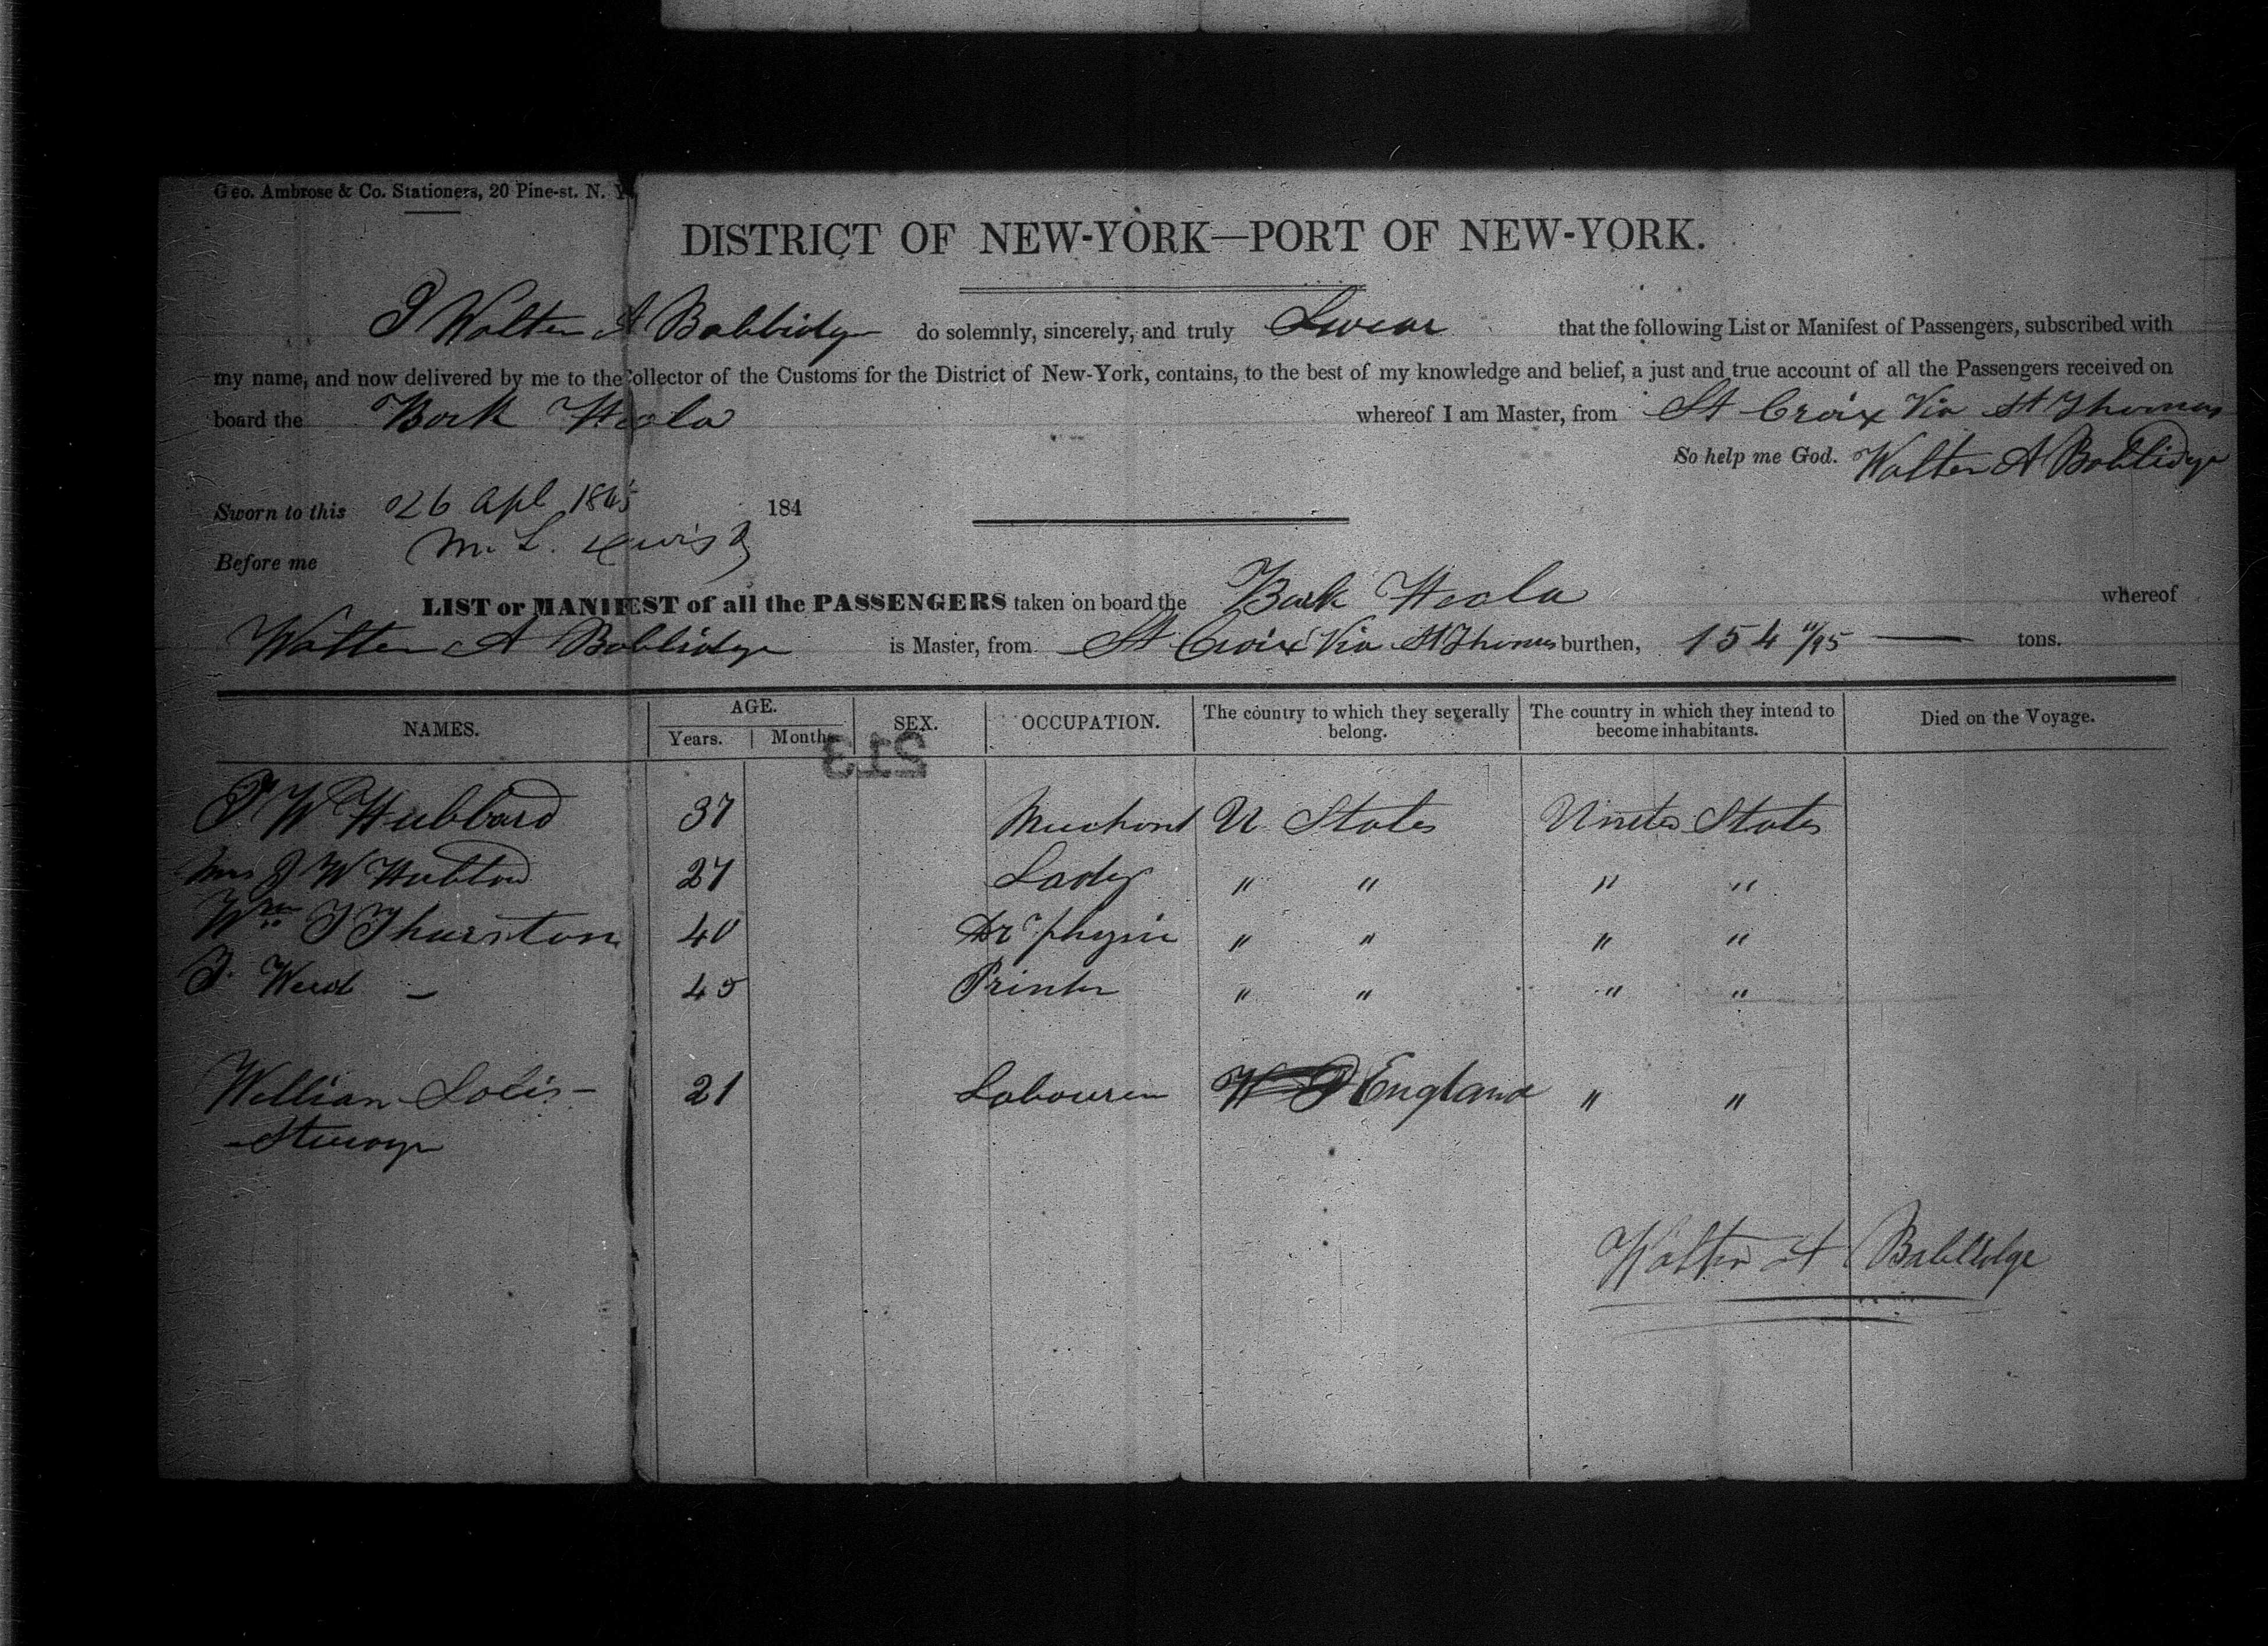 Geo. Ambrose & Co. Stationers, 20 Pine-st. N. Y.
DISTRICT OF NEW-YORK—PORT OF NEW-YORK.
I Walter A Babbidge do solemnly, sincerely, and truly Swear that the following List or Manifest of Passengers, subscribed with
my name, and now delivered by me to the Collector of the Customs for the District of New-York, contains, to the best of my knowledge and belief, a just and true account of all the Passengers received on
board the Bark Hecla whereof I am Master, from St Croix Via St Thomas
So help me God. Walter A Babbidge
Sworn to this 26 Apl 1845 184
Before me M. L.
LIST or MANIFEST of all the PASSENGERS taken on board the Bark Hecla whereof
Walter A Babbidge is Master, from St Croix Via St Thomas burthen, 154 11/95 tons.
NAMES. AGE. Years. Months. SEX. OCCUPATION. The country to which they severally belong. The country in which they intend to become inhabitants. Died on the Voyage.
213
W Hubbard 37 Merchant U States United States
Mrs J W Hubbard 27 Lady " " " "
Wm T Thurston 40 Dr physic " " " "
Ward — 45 Printer " " " "
William 21 Labourer England " "
Walter A Babbidge